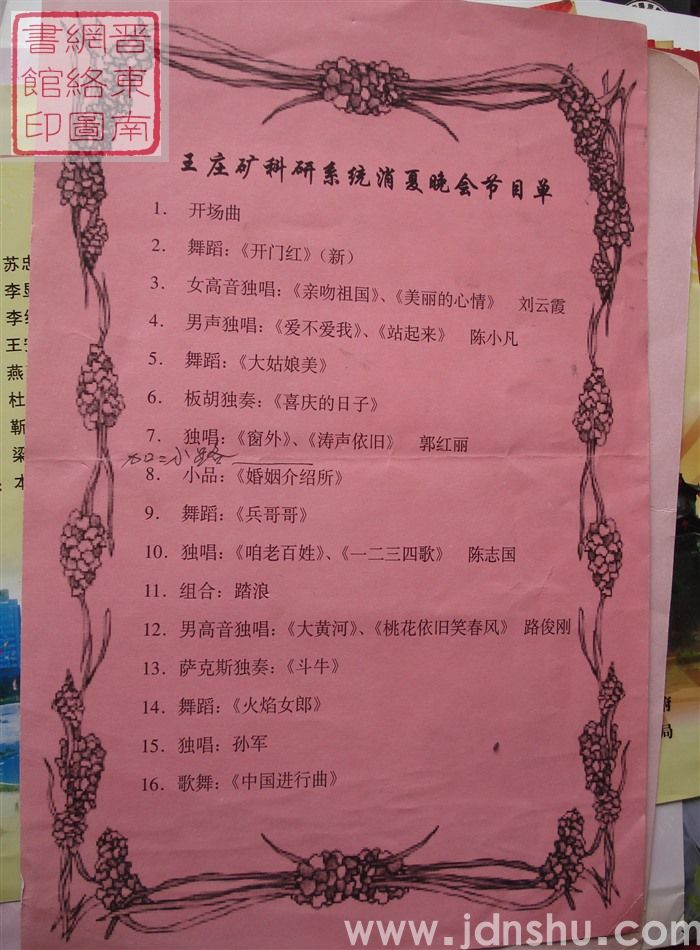 晋東南
網絡圖
書館印
王庄矿科研系统消夏晚会节目单
1. 开场曲
2. 舞蹈：《开门红》（新）
3. 女高音独唱：《亲吻祖国》、《美丽的心情》 刘云霞
4. 男声独唱：《爱不爱我》、《站起来》 陈小凡
5. 舞蹈：《大姑娘美》
6. 板胡独奏：《喜庆的日子》
7. 独唱：《窗外》、《涛声依旧》 郭红丽
8. 小品：《婚姻介绍所》
9. 舞蹈：《兵哥哥》
10. 独唱：《咱老百姓》、《一二三四歌》 陈志国
11. 组合：踏浪
12. 男高音独唱：《大黄河》、《桃花依旧笑春风》 路俊刚
13. 萨克斯独奏：《斗牛》
14. 舞蹈：《火焰女郎》
15. 独唱：孙军
16. 歌舞：《中国进行曲》
苏忠
李
李
王
燕
杜
靳
梁
本
局
www.jdnshu.com